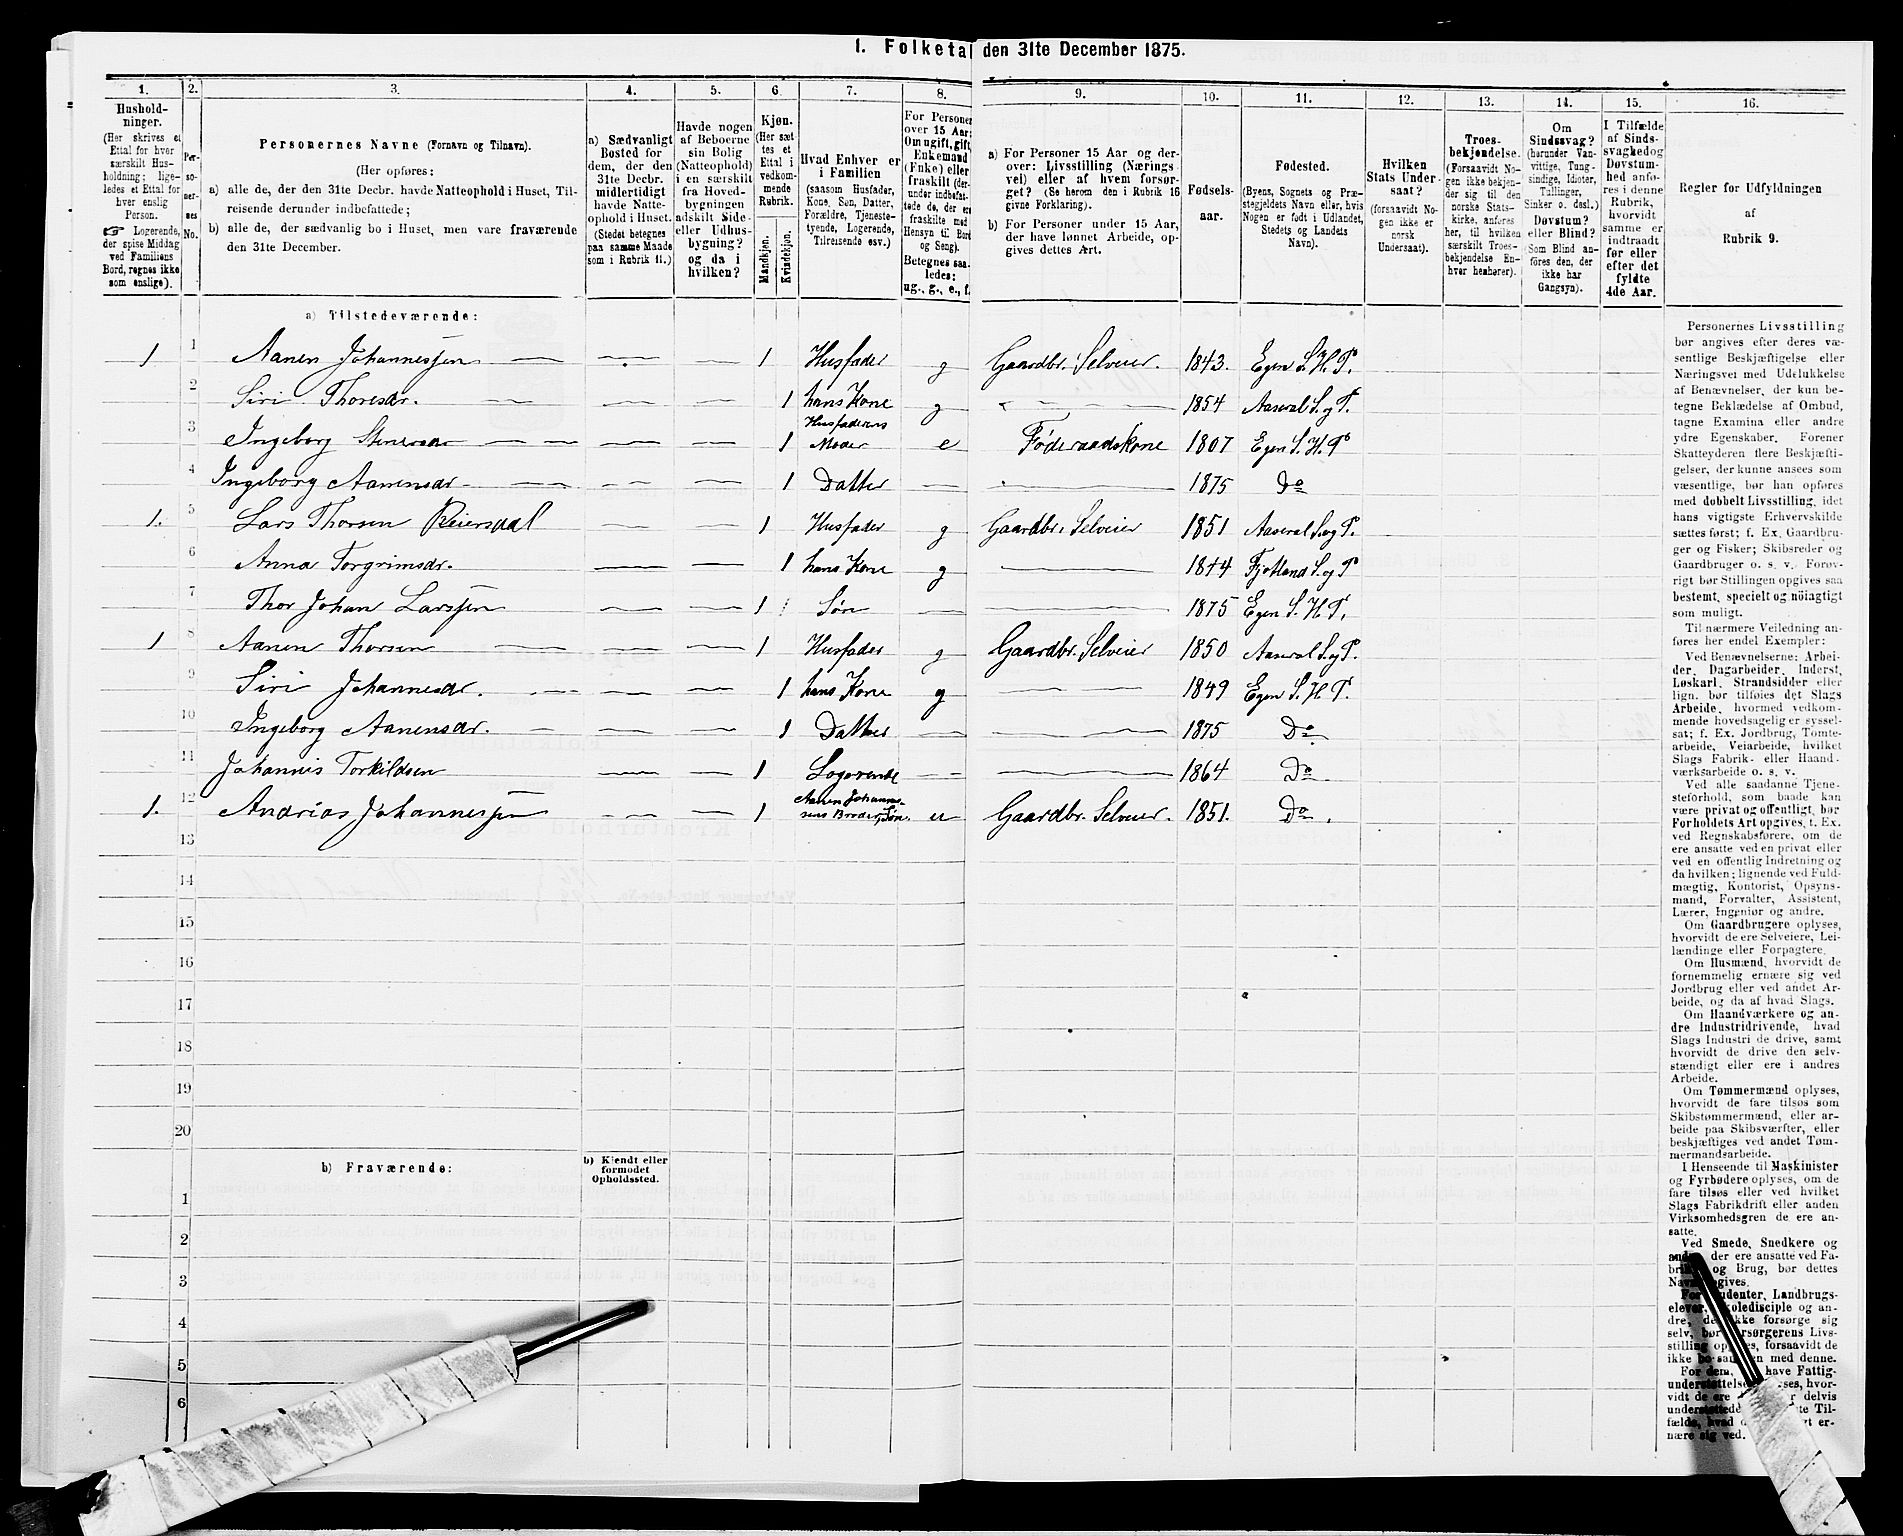 1. Folketal den 31te December 1875.
1. 2. 3. 4. 5. 6. 7. 8. 9. 10. 11. 12. 13. 14. 15. 16.
Hushold-
ninger.
(Her skrives et
Ettal for hver
særskilt Hus-
holdning; lige-
ledes et Ettal for
hver enslig
Person.
☞ Logerende,
der spise Middag
ved Familiens
Bord, regnes ikke
som enslige).
Per-
so-
ner-
nes
No.
Personernes Navne (Fornavn og Tilnavn).
(Her opføres:
a) alle de, der den 31te Decbr. havde Natteophold i Huset, Til-
reisende derunder indbefattede;
b) alle de, der sædvanlig bo i Huset, men vare fraværende
den 31te December.
a) Sædvanligt
Bosted for
dem, der den
31te Decbr.
midlertidigt
havde Natte-
ophold i Huset.
(Stedet betegnes
paa samme Maade
som i Rubrik 11.)
Havde nogen
af Beboerne
sin Bolig
(Natteophold)
i en særskilt
fra Hoved-
bygningen
adskilt Side-
eller Udhus-
bygning?
og da i
hvilken?
Kjøn.
(Her sæt-
tes et
Ettal i
vedkom-
mende
Rubrik.
Mandkjøn.
Kvindekjøn.
Hvad Enhver er
i Familien
(saasom Husfader,
Kone, Søn, Datter,
Forældre, Tjeneste-
tyende, Logerende,
Tilreisende osv.)
For Personer
over 15 Aar:
Om ugift, gift,
Enkemand
(Enke) eller
fraskilt (der-
under indbefat-
tede de, der ere
fraskilte med
Hensyn til Bord
og Seng).
Betegnes saa-
ledes:
ug., g., e., f.
a) For Personer 15 Aar og der-
over: Livsstilling (Nærings-
vei) eller af hvem forsør-
get? (Se herom den i Rubrik 16
givne Forklaring).
b) For Personer under 15 Aar,
der have lønnet Arbeide, op-
gives dettes Art.
Fødsels-
aar.
Fødested.
(Byens, Sognets og Præ-
stegjeldets Navn eller, hvis
Nogen er født i Udlandet,
Stedets og Landets
Navn).
Hvilken
Stats Under-
saat?
(forsaavidt No-
gen ikke er
norsk
Undersaat).
Troes-
bekjendelse.
(Forsaavidt No-
gen ikke bekjen-
der sig til den
norske Stats-
kirke, anføres
her, til hvilken
særskilt Troes-
bekjendelse En-
hver henhører).
Om
Sindssvag?
(herunder Van-
vittige, Tung-
sindige, Idioter,
Tullinger,
Sinker o. desl.)
Døvstum?
eller Blind?
(Som Blind an-
føres den, der
ikke har
Gangsyn).
I Tilfælde
af Sinds-
svagked og
Døvstum-
hed anfø-
res i denne
Rubrik,
hvorvidt
samme er
indtraadt
før eller
efter det
fyldte
4de Aar.
Regler for Udfyldningen
af
Rubrik 9.
a) Tilstedeværende:
1 1 Aanen Johannessen 1 Husfader g Gaardbr. Selveier. 1843. Egen S. H. P.
2 Siri Thoresdr. 1 hans Kone g 1854 Aaseral S. og P.
3 Ingeborg Stenersdr 1 Husfaderens Moder e Føderaadskone 1807 Egen S. H. P.
4 Ingeborg Aanensdr 1 Datter 1875 Do
1. 5 Lars Thorsen Reiersdal 1 Husfader g Gaardbr. Selveier 1851 Aaseral S. og P.
6 Anna Torgrimsdr. 1 hans Kone g 1844 Fjotland S. og P
7 Thor Johan Larssen 1 Søn 1875 Egen S. H. P.
1 8 Aanen Thorsen 1 Husfader g Gaardbr. Selveier 1850 Aaseral S. og P.
9 Siri Johannesdr. 1 hans Kone g 1849 Egen S. H. P.
10 Ingeborg Aanensdr. 1 Datter 1875 Do
11 Johannis Torkildsen 1 Logerende 1864 Do
1. 12 Andrias Johannessen 1 Aanen Johanne-
sens Broder, Søn. u Gaardbr. Selveier. 1851. Do.
13
14
15
16
17
18
19
20
b) Fraværende:
b) Kjendt eller
formodet
Opholdssted.
1
2
3
4
5
6
Personernes Livsstilling
bør angives efter deres væ-
sentlige Beskjæftigelse eller
Næringsvei med Udelukkelse
af Benævnelser, der kun be-
tegne Beklædelse af Ombud,
tagne Examina eller andre
ydre Egenskaber. Forener
Skatteyderen flere Beskjæfti-
gelser, der kunne ansees som
væsentlige, bør han opføres
med dobbelt Livsstilling, idet
hans vigtigste Erhvervskilde
sættes først; f. Ex. Gaardbru-
ger og Fisker; Skibsreder og
Gaardbruger o. s. v. Forøv-
rigt bør Stillingen opgives saa
bestemt, specielt og nöiagtigt
som muligt.
Til nærmere Veiledning an-
føres her endel Exempler:
Ved Benævnelserne: Arbei-
der, Dagarbeider, Inderst,
Løskarl, Strandsidder eller
lign. bør tilføies det Slags
Arbeide, hvormed vedkom-
mende hovedsagelig er syssel-
sat; f. Ex. Jordbrug, Tomte-
arbeide, Veiarbeide, hvilket
Slags Fabrik- eller Haand-
værksarbeide o. s. v.
Ved alle saadanne Tjene-
steforhold, som baade kan
være privat og offentligt, bør
Forholdets Art opgives, f. Ex.
ved Regnskabsførere, om de
ere ansatte ved en privat eller
ved en offentlig Indretning og
da hvilken; lignende ved Fuld-
mægtig, Kontorist, Opsyns-
mand, Forvalter, Assistent,
Lærer, Ingeniør og andre.
Om Gaardbrugere oplyses,
hvorvidt de ere Selveiere, Lei-
lændinge eller Forpagtere.
Om Husmænd, hvorvidt de
fornemmelig ernære sig ved
Jordbrug eller ved andet Ar-
beide, og da af hvad Slags.
Om Haandværkere og an-
dre Industridrivende, hvad
Slags Industri de drive, samt
hvorvidt de drive den selv-
stændigt eller ere i andres
Arbeide.
Om Tømmermænd oplyses,
hvorvidt de fare tilsøs som
Skibstømmermænd, eller ar-
beide paa Skibsværfter, eller
beskjæftiges ved andet Tøm-
mermandsarbeide.
I Henseende til Maskinister
og Fyrbødere oplyses, om de
fare tilsøs eller ved hvilket
Slags Fabrikdrift eller anden
Virksomhedsgren de ere an-
satte.
Ved Smede, Snedkere og
andre, der ere ansatte ved Fa-
brik og Brug, bør dettes
Navn opgives.
For Studenter, Landbrugs-
elever, Skoledisciple og an-
dre, der ikke forsørge sig
selv, bør Forsørgerens Livs-
stilling opgives, forsaavidt de
ikke bo sammen med denne.
For dem, have Fattig-
understøttelse, hvor-
vidt de ere delvis
understøttede Til-
fælde, hvad er-
nære sig ved.